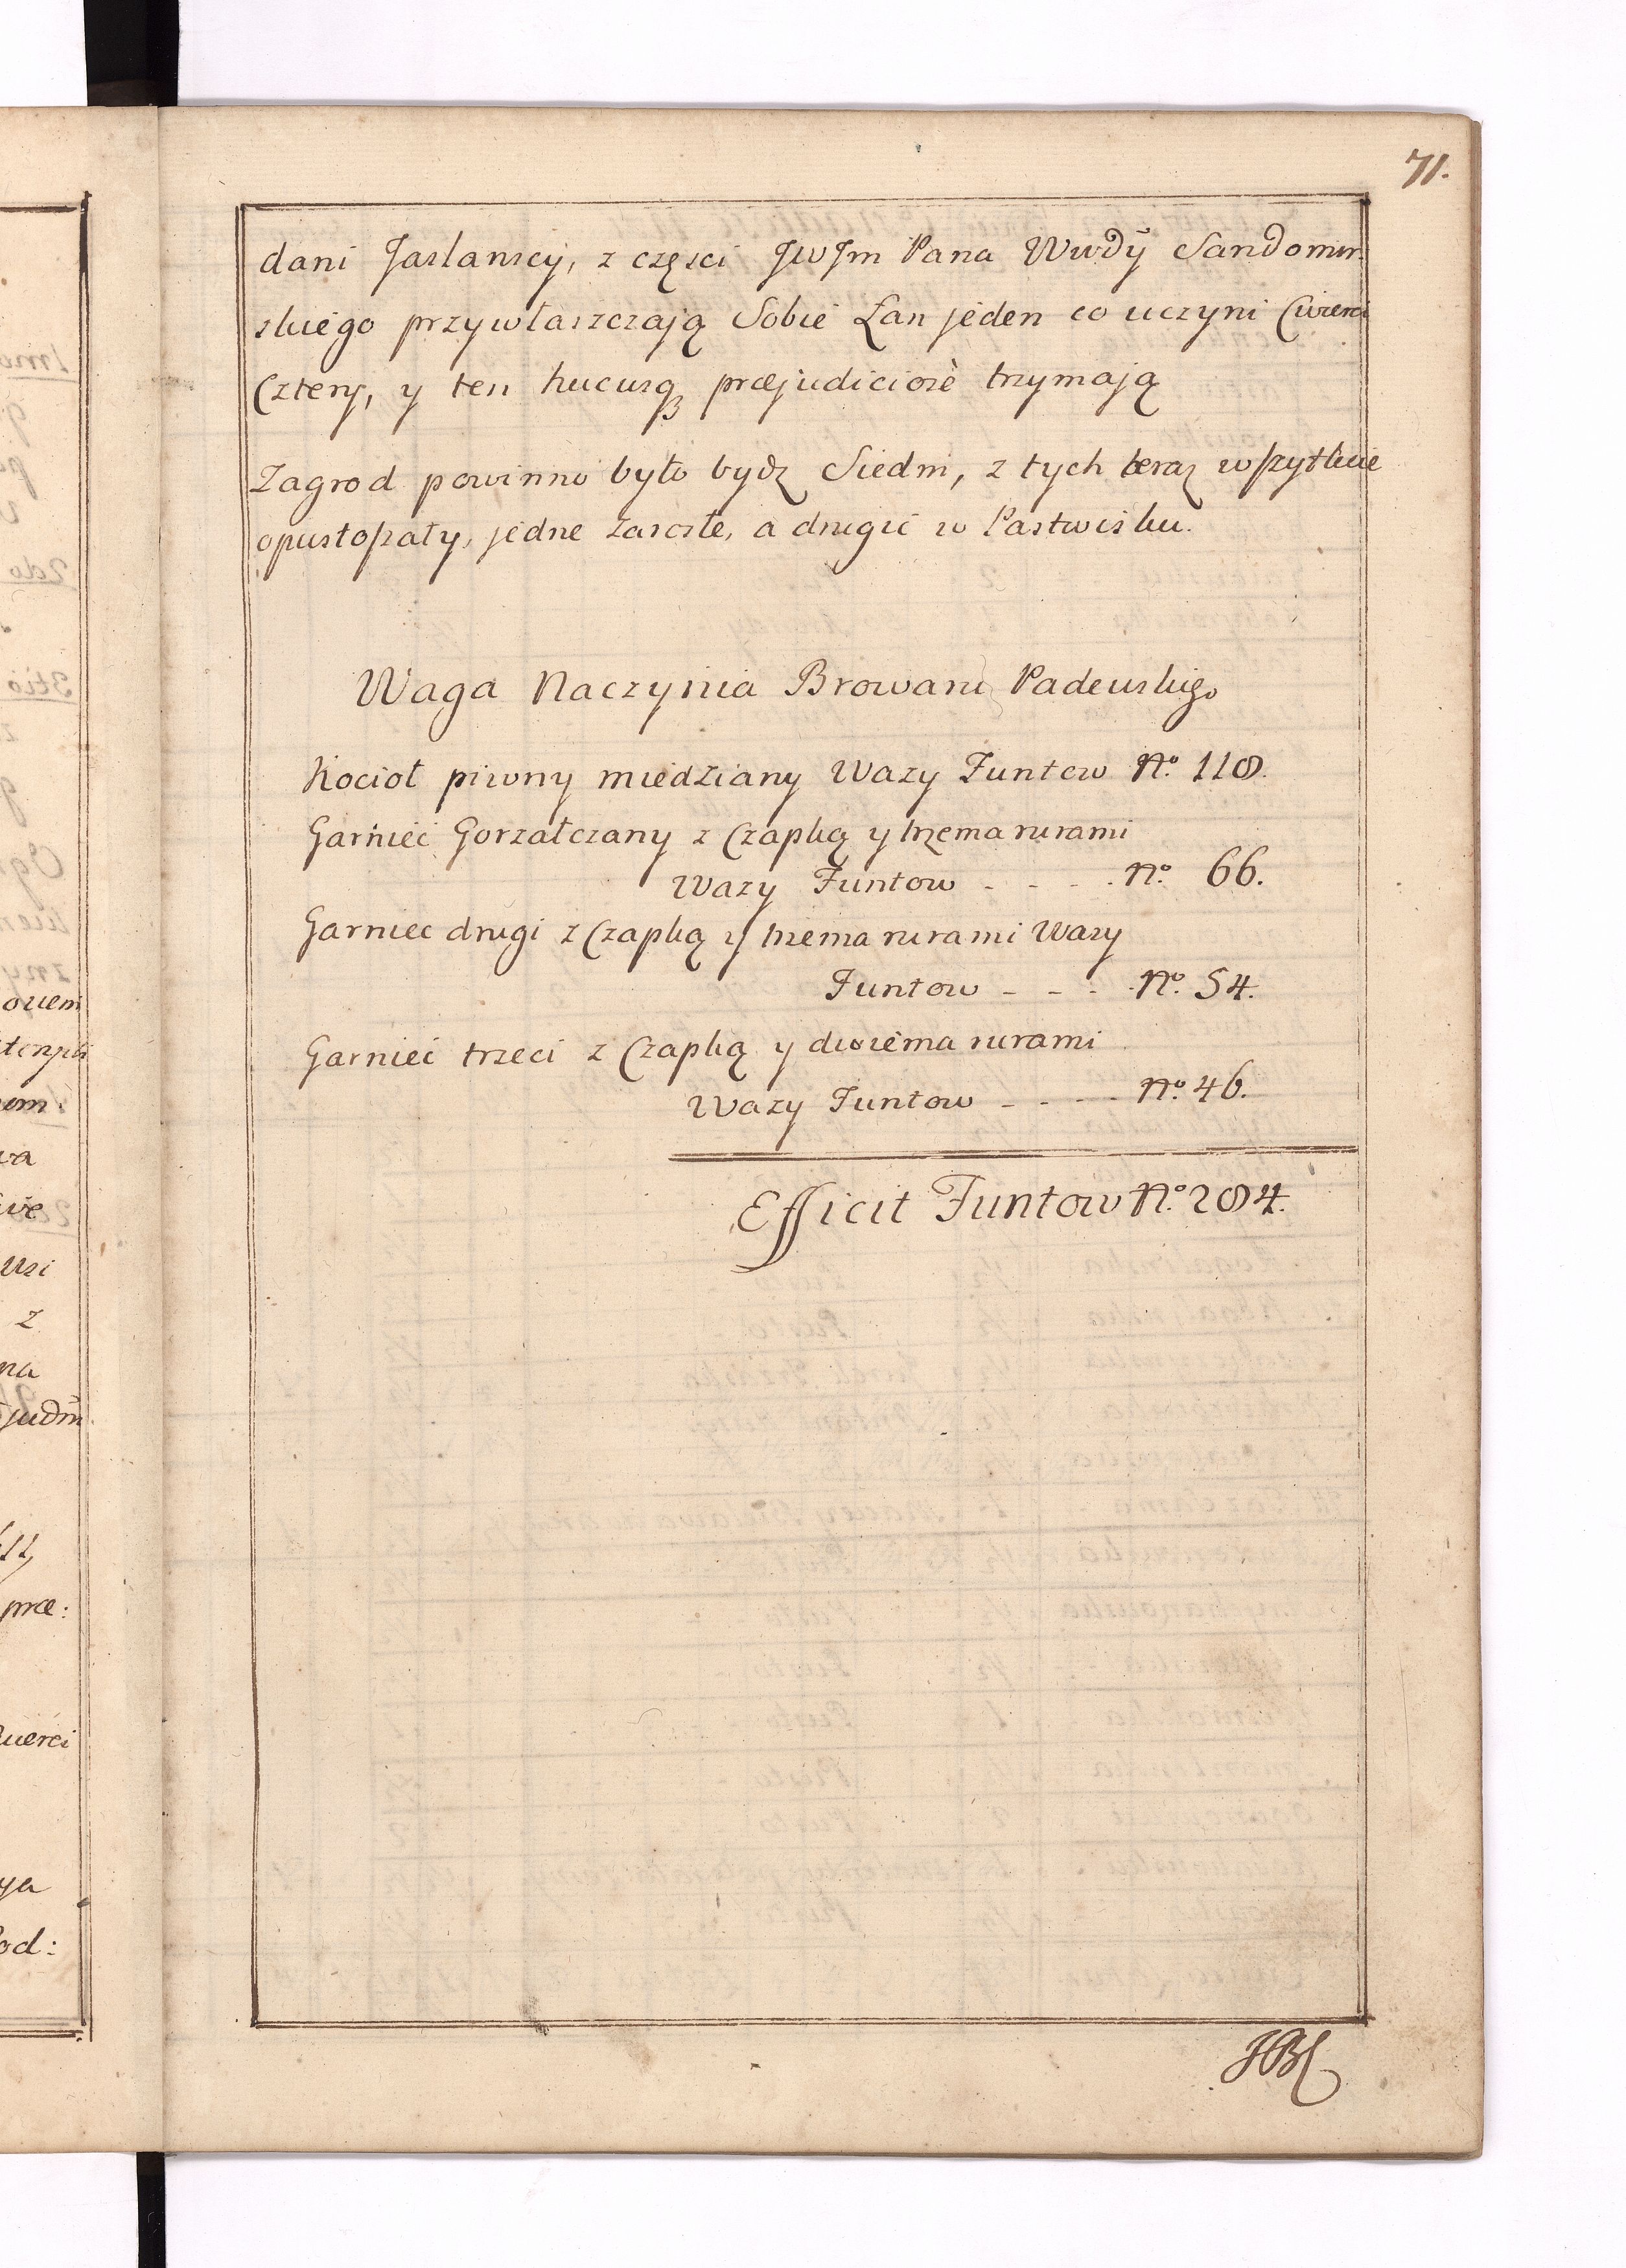 71.
dani Jaslanscy, z częsci JWJm Pana Wwdy Sandomir
skiego przywłaszczają Sobie Łan jeden co uczyni Cwierci
Cztery, y ten hucusq præjudiciosè trzymają
Zagrod powinno było bydz Siedm, z tych teraz wszytkie
opustoszały, jedne zarosłe, a drugie w Pastwisku.
Waga Naczynia Browaru Padewskiego
Kocioł piwny miedziany Wazy Funtow No. 118.
Garniec Gorzałczany z Czapką y trzema rurami
Wazy Funtow - - - . No. 66.
Garniec drugi z Czapką y trzema rurami Wazy
Funtow - - - . No. 54.
Garniec trzeci z Czapką y dwiema rurami
Wazy Funtow - - - - No. 46.
Efficit Funtow No. 284.